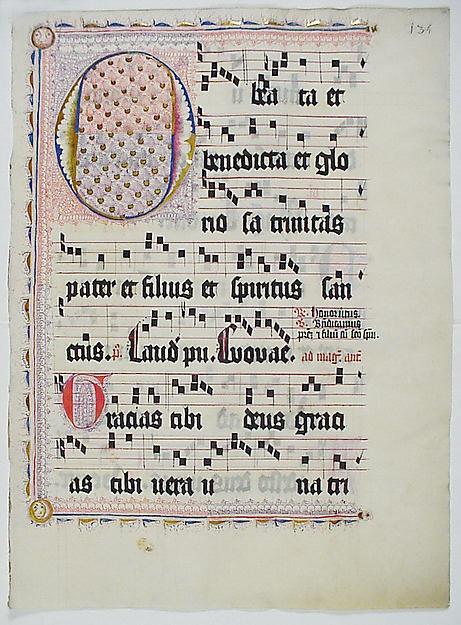 134
O bea ta et
benedicta et glo
rio sa trinitas
pater et filius et spiritus san
ctus. p. Laud pu. Evovae. ad mag. ant
R. Honor uirtus.
V. Bndicamus
Gracias tibi deus graci
as tibi uera u na tri